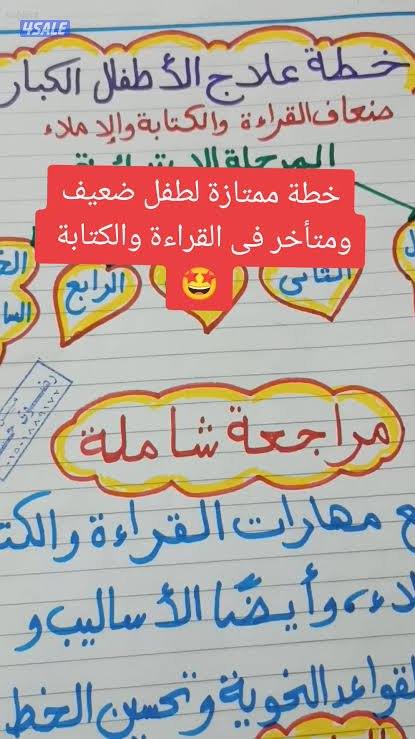 4SALE
خطة علاج الأطفال الكبار
ضعاف القراءة والكتابة والإملاء
المرحلة
خطة ممتازة لطفل ضعيف
ومتأخر فى القراءة والكتابة
الثانى
الرابع
مراجعة شاملة
مهارات القراءة والكتا
لاء، وأيضًا الأساليب و
لقواعد النحوية وتحسين الخط